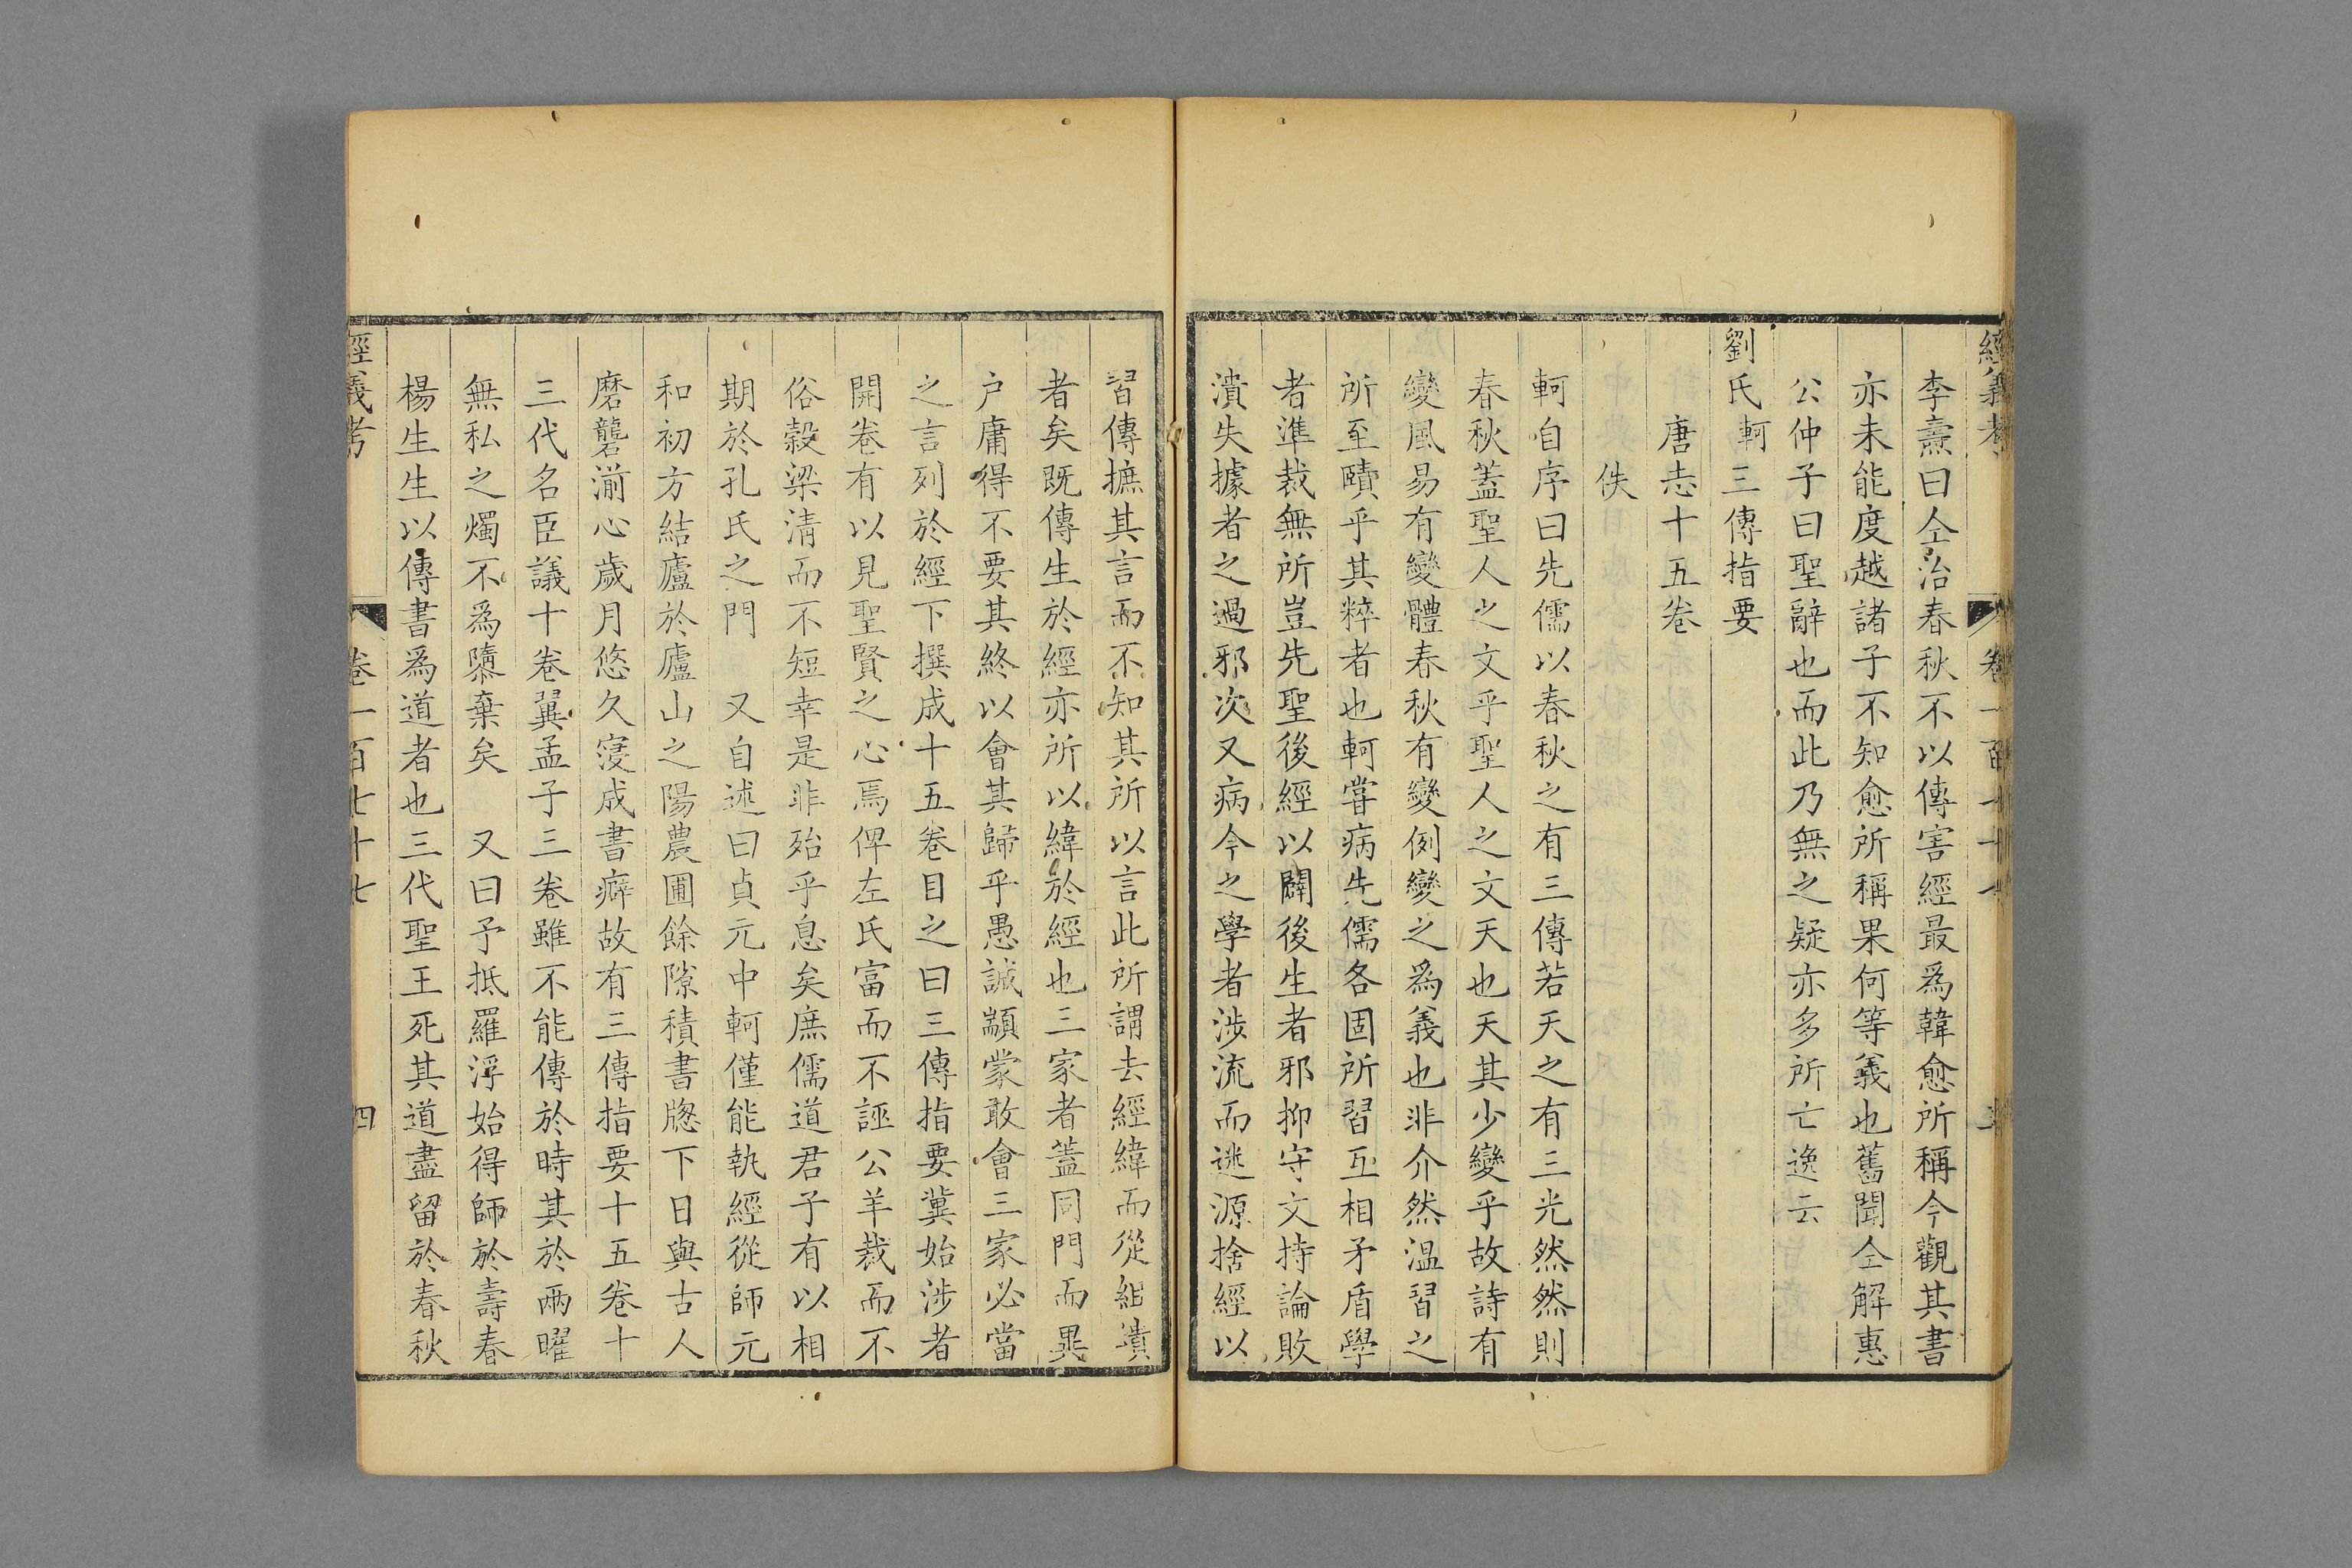 經義考
卷一百七十七
李燾曰仝治春秋不以傳害經最爲韓愈所稱今觀其書
亦未能度越諸子不知愈所稱果何等義也舊聞仝解惠
公仲子曰聖辭也而此乃無之疑亦多所亡逸云
劉氏軻三傳指要
唐志十五卷
佚
軻自序曰先儒以春秋之有三傳若天之有三光然然則
春秋蓋聖人之文乎聖人之文天也天其少變乎故詩有
變風易有變體春秋有變例變之爲義也非介然溫習之
所至賾乎其粹者也軻嘗病先儒各固所習互相矛盾學
者準裁無所豈先聖後經以闢後生者邪抑守文持論敗
潰失據者之過邪次又病今之學者涉流而迷源捨經以
習傳摭其言而不知其所以言此所謂去經緯而從組繢
者矣既傳生於經亦所以緯於經也三家者蓋同門而異
户庸得不要其終以會其歸乎愚誠顓蒙敢會三家必當
之言列於經下撰成十五卷目之曰三傳指要冀始涉者
開卷有以見聖賢之心焉俾左氏富而不誣公羊裁而不
俗穀梁清而不短幸是非殆乎息矣庶儒道君子有以相
期於孔氏之門　又自述曰貞元中軻僅能執經從師元
和初方結廬於廬山之陽農圃餘隙積書牕下日與古人
磨礱湔心歲月悠久寖成書癖故有三傳指要十五卷十
三代名臣議十卷翼孟子三卷雖不能傳於時其於兩曜
無私之燭不爲隳棄矣　又曰予抵羅浮始得師於壽春
楊生生以傳書爲道者也三代聖王死其道盡留於春秋
經義考
卷一百七十七
四